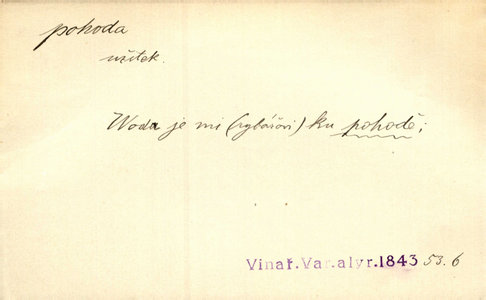 pohoda
užitek.
Woda je mi (rybářovi) ku pohodě;
Vinař.Var.alyr.1843 53.6